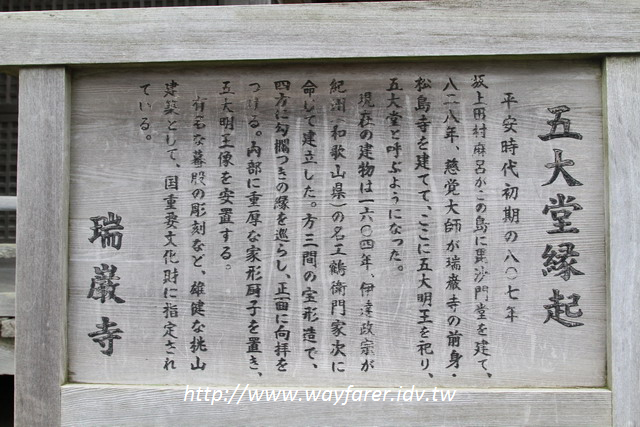 五大堂縁起
平安時代初期の八〇七年
坂上田村麻呂がこの島に毘沙門堂を建て、
八二八年、慈覚大師が瑞巌寺の前身・
松島寺を建てて、ここに五大明王を祀り、
五大堂と呼ぶようになった。
現在の建物は一六〇四年、伊達政宗が
紀州(和歌山県)の名工鶴衛門家次に
命じて建立した。方三間の宝形造で、
四方に勾欄つきの縁を巡らし、正面に向拝を
つける。内部に重厚な家形厨子を置き、
五大明王像を安置する。
有名な蟇股の彫刻など、雄健な桃山
建築として、国重要文化財に指定され
ている。
瑞巌寺
http://www.wayfarer.idv.tw